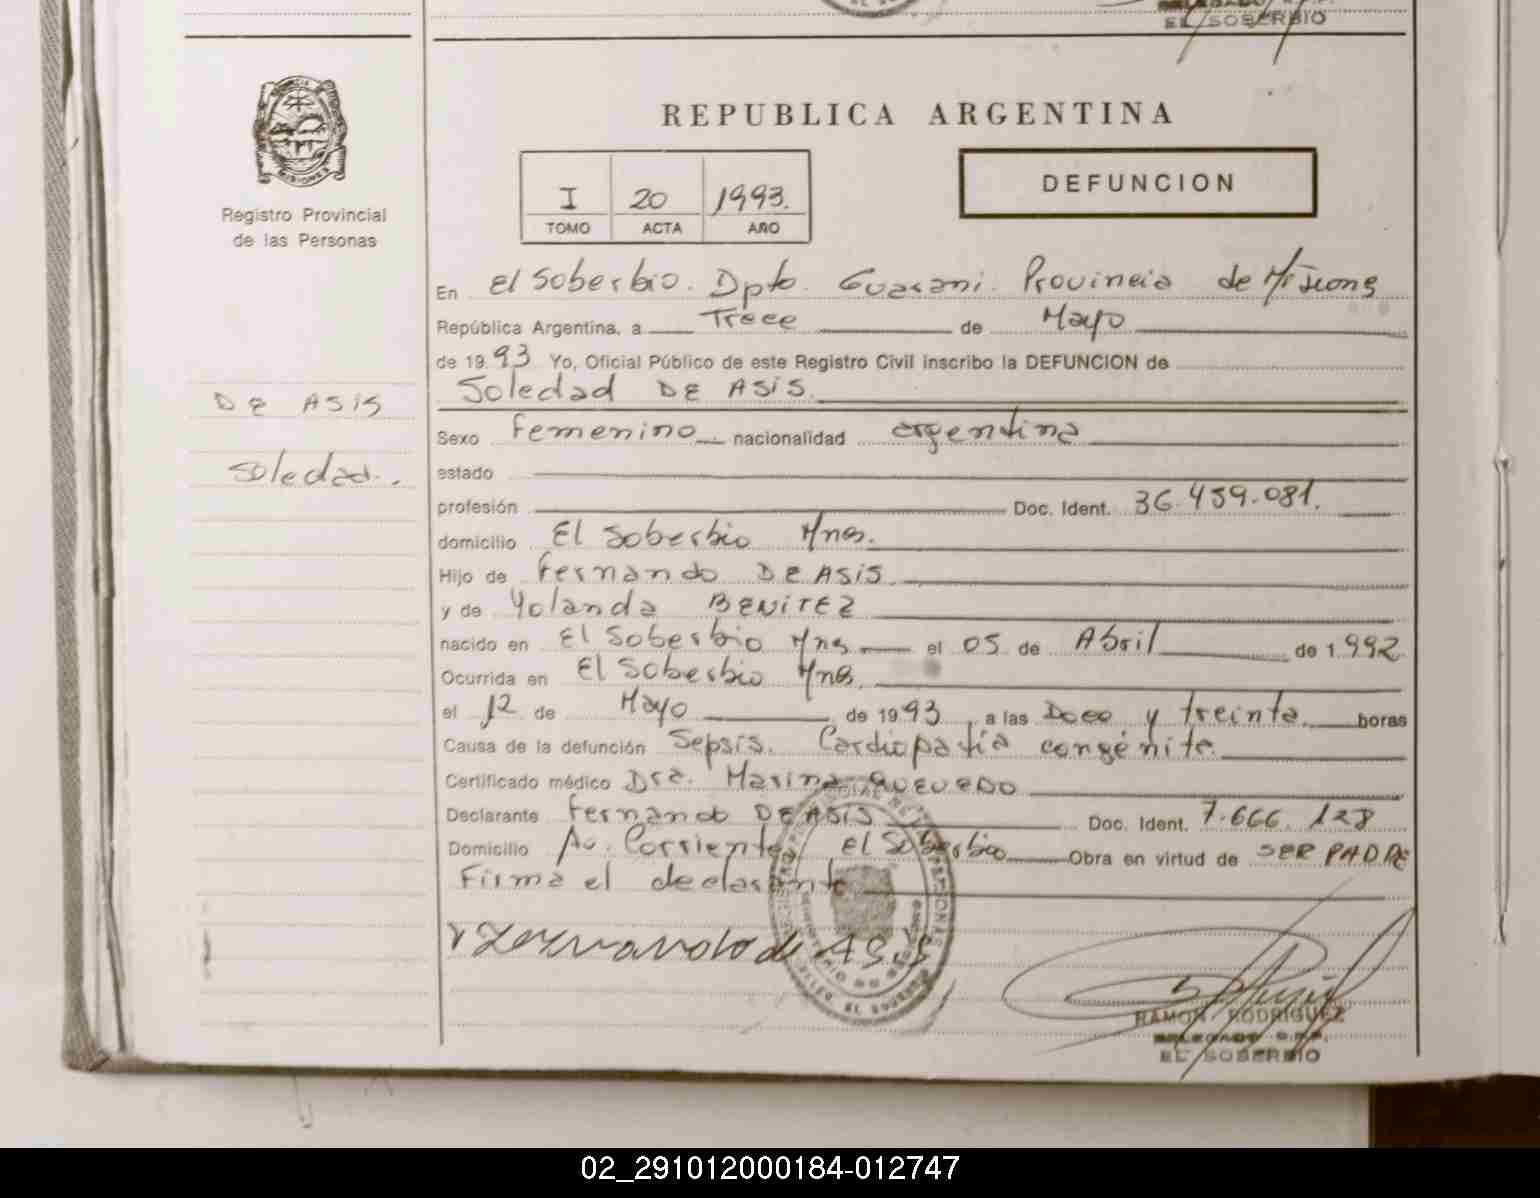 EL SOBERBIO
REPUBLICA ARGENTINA
MISIONES
Registro Provincial
de las Personas
I 20 1993.
TOMO ACTA AÑO
DEFUNCION
En El Soberbio. Dpto. Guarani. Provincia de Misiones
República Argentina, a Trece de Mayo
de 19 93 Yo, Oficial Público de este Registro Civil inscribo la DEFUNCION de
Soledad DE ASIS.
DE ASIS
Soledad.
Sexo Femenino nacionalidad argentina
estado
profesión Doc. Ident. 36.459.081.
domicilio El Soberbio Mnes.
Hijo de Fernando DE ASIS
y de Yolanda BENITEZ
nacido en El Soberbio Mnes el 05 de Abril de 1.992
Ocurrida en El Soberbio Mnes.
el 12 de Mayo de 1993, a las Doce y treinta horas
Causa de la defunción Sepsis. Cardiopatía congénita.
Certificado médico Dra. Marina QUEVEDO
Declarante Fernando DE ASIS Doc. Ident. 7.666.128
Domicilio Av. Corriente El Soberbio Obra en virtud de SER PADRE
Firma el declarante
Fernando de ASIS
RAMON RODRIGUEZ
DELEGADO R.P.P.
EL SOBERBIO
02_291012000184-012747